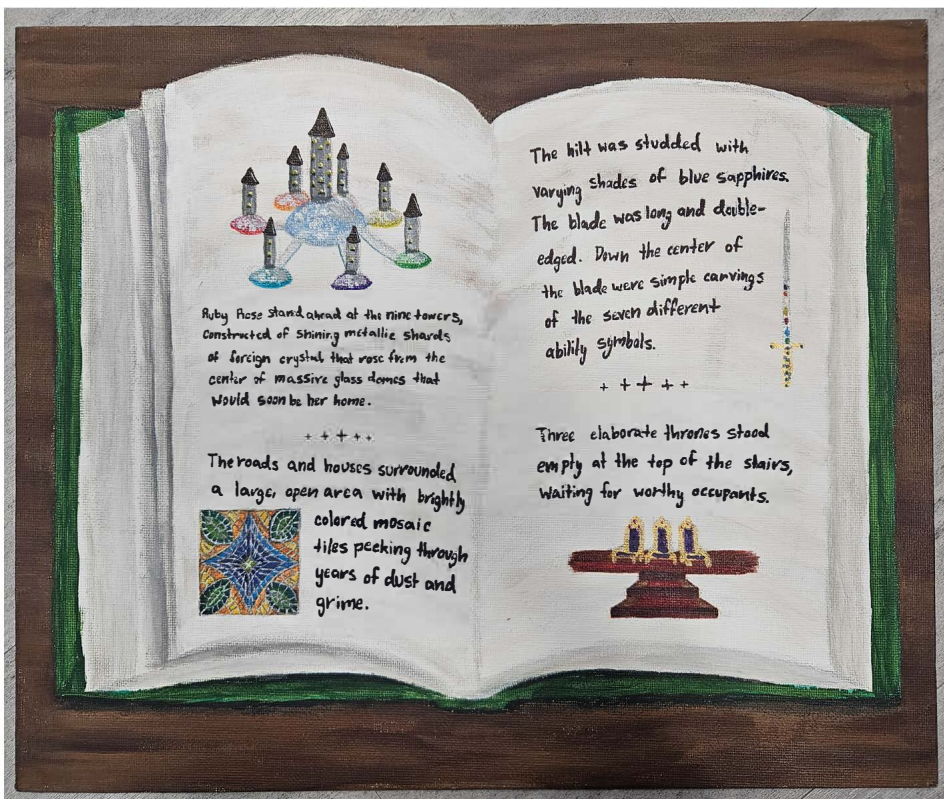 Ruby Rose stand ahead at the nine towers,
constructed of shining metallic shards
of foreign crystal, that rose from the
center of massive glass domes that
would soon be her home.
+ + + + +
The roads and houses surrounded
a large, open area with brightly
colored mosaic
tiles peeking through
years of dust and
grime.
The hilt was studded with
varying shades of blue sapphires.
The blade was long and double-
edged. Down the center of
the blade were simple carvings
of the seven different
ability symbols.
+ + + + +
Three elaborate thrones stood
empty at the top of the stairs,
waiting for worthy occupants.